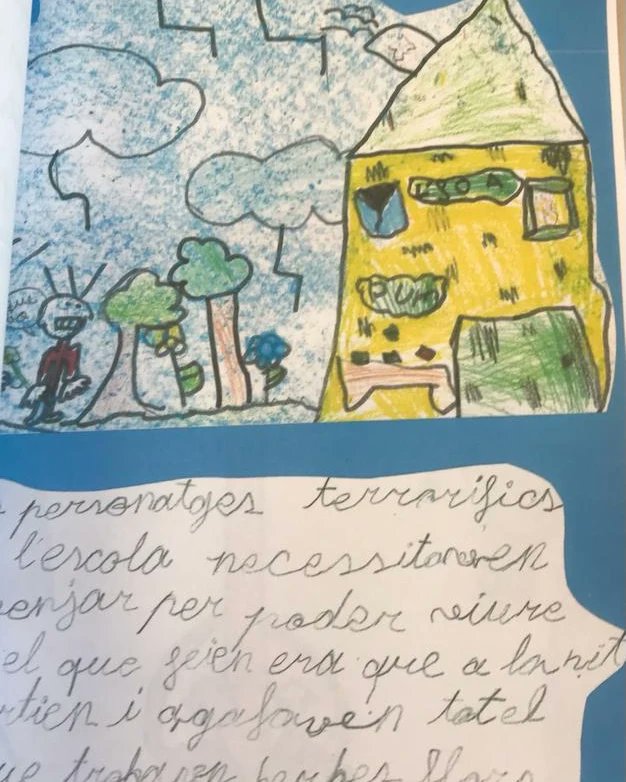 PUM
personatges terrorifics
l'escola necessitaven
enjar per poder viure
el que feien era que a la nit
tien i agafaven tot el
ue trobaven herbes flors